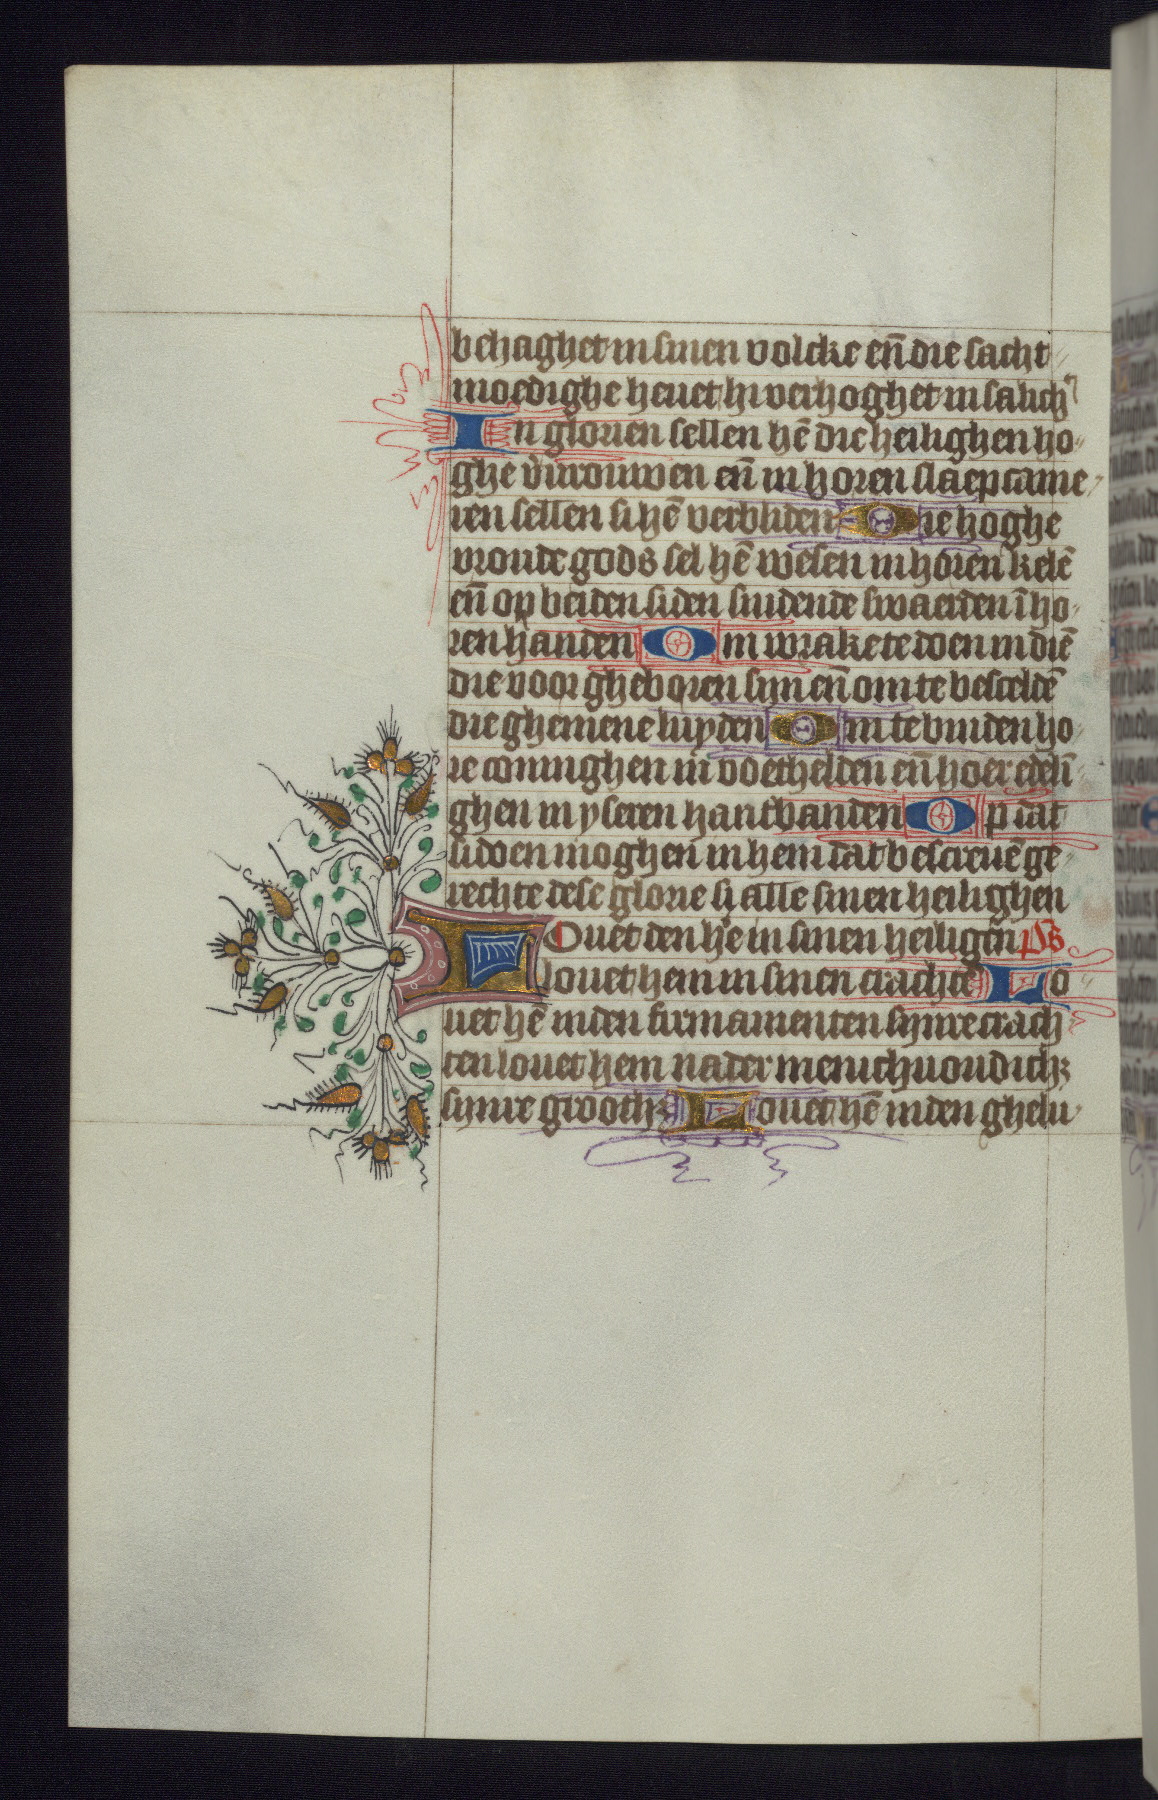 behaghet in sinen volcke en̄ die sacht
moedighe heuet hi verhoghet in salich⁊
In glorien sellen hē die heilighen ho
ghe v̓vrouwen en̄ in horen slaepcame
ren sellen si hē verbliden Die hoghe
vroude gods sel hē wesen in horen kelē
en̄ op beiden siden snidende swaerden ī ho
ren handen Om wrake te doen in diē
die voor gheboren sijn en̄ om te besceldē
die ghemene luyden Om te binden ho
re coninghen in voethelden en̄ hoer edeli
ghen in yseren hantbanden Op dat
si doen moghen in hem dat bescreuē ge
rechte dese glorie si alle sinen heilighen
Louet den he in sinen heiligēn ps
louet hem in sinen crachtē Lo
uet hē in den firmamenten synre crach
ten louet hem na der menichuoudichꝫ
synre groothꝫ Louet hē in den ghelu